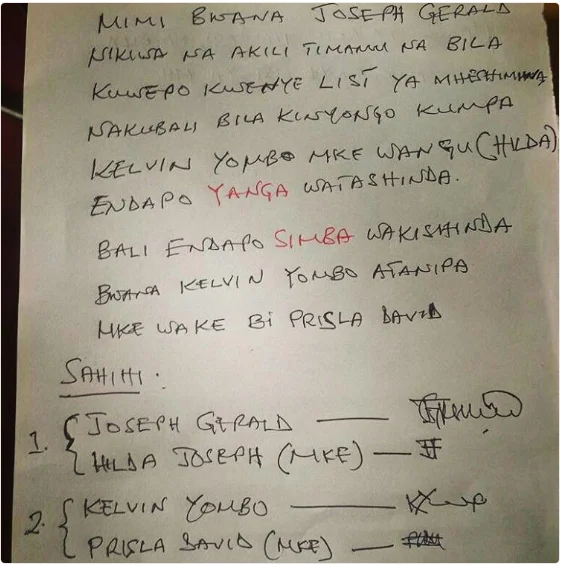 MIMI BWANA JOSEPH GERALD
NIKIWA NA AKILI TIMAMU NA BILA
KUWEPO KWENYE LIST YA MHESHIMIWA
NAKUBALI BILA KINYONGO KUMPA
KELVIN YOMBO MKE WANGU (HILDA)
ENDAPO YANGA WATASHINDA.
BALI ENDAPO SIMBA WAKISHINDA
BWANA KELVIN YOMBO ATANIPA
MKE WAKE Bi PRISLA DAVID
SAHIHI:
1. { JOSEPH GERALD —
HILDA JOSEPH (MKE) —
2. { KELVIN YOMBO —
PRISLA DAVID (MKE) —